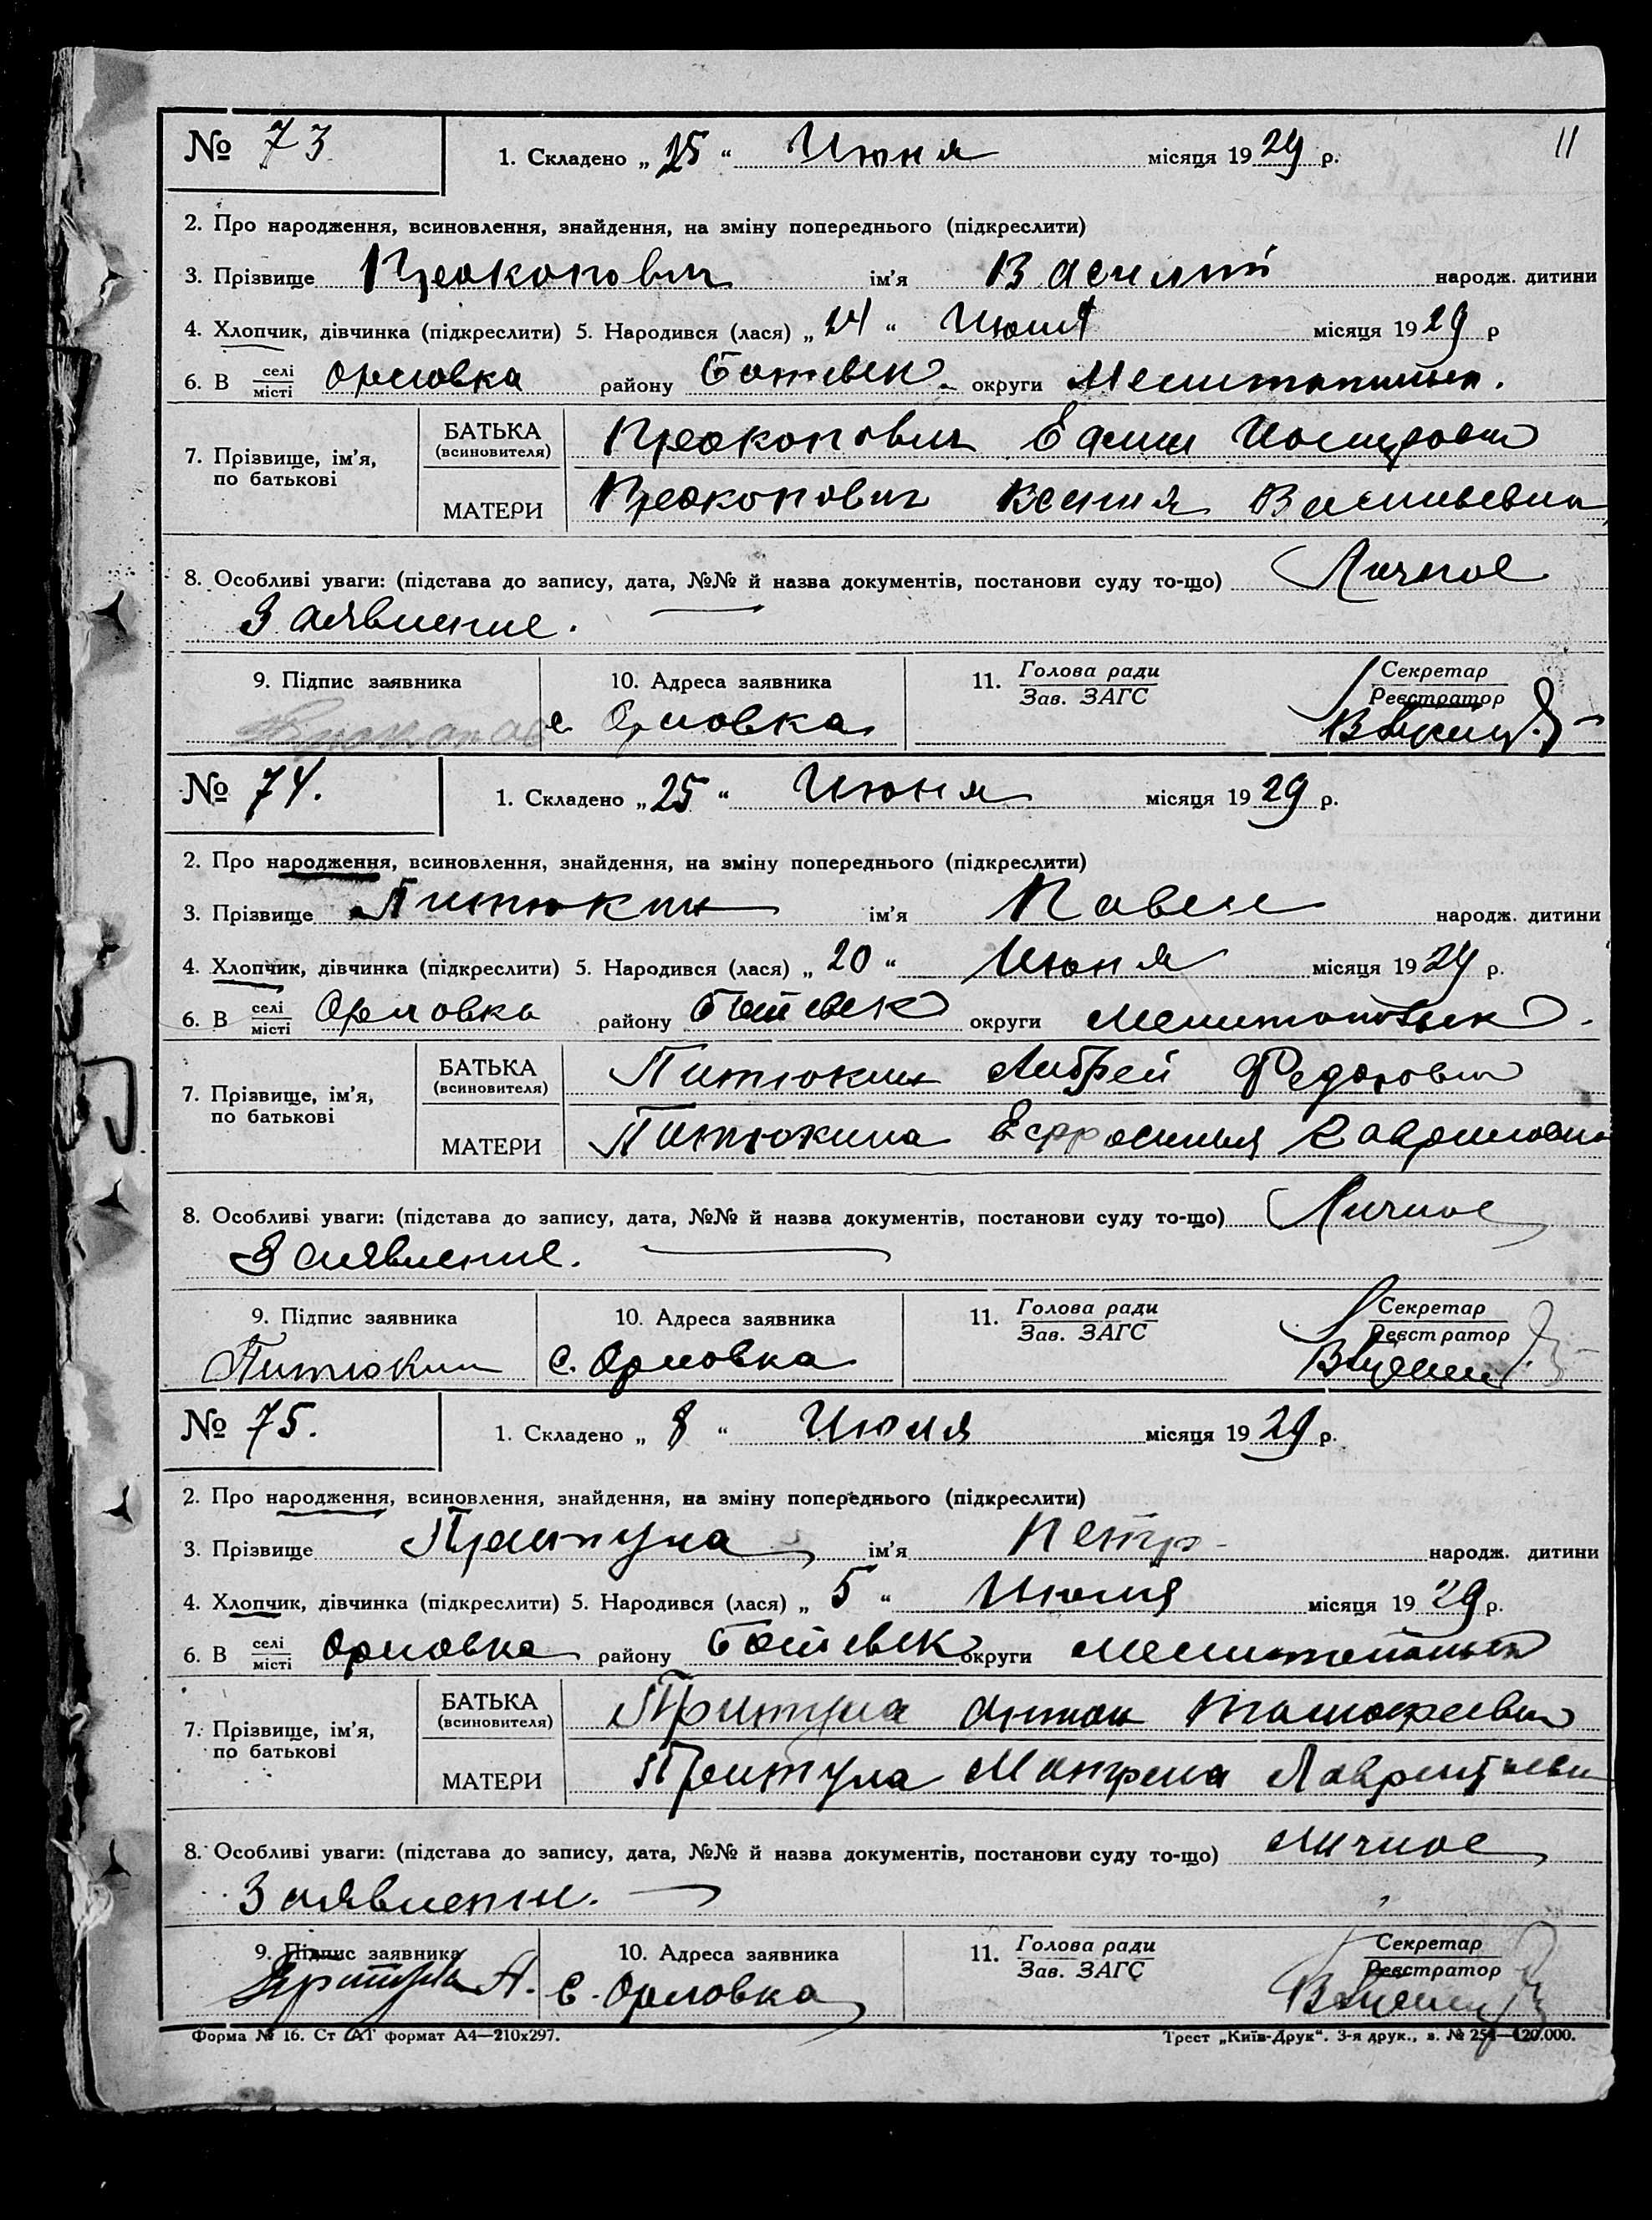 11
№ 73 1. Складено „25“ Июня місяця 1929 р.
2. Про народження, всиновлення, знайдення, на зміну попереднього (підкреслити)
3. Прізвище Прокопович ім'я Василий народж. дитини
4. Хлопчик, дівчинка (підкреслити) 5. Народився (лася) „24“ Июня місяця 1929 р
6. В селі місті Орловка району Ботевск округи
7. Прізвище, ім'я, по батькові
БАТЬКА (всиновителя) Прокопович Ефим
МАТЕРИ Прокопович Ксения Васильевна
8. Особливі уваги: (підстава до запису, дата, №№ й назва документів, постанови суду то-що) Личное
Заявление.
9. Підпис заявника 10. Адреса заявника 11. Голова ради Зав. ЗАГС Секретар Реєстратор
с. Орловка
№ 74. 1. Складено „25“ Июня місяця 1929 р.
2. Про народження, всиновлення, знайдення, на зміну попереднього (підкреслити)
3. Прізвище Питюкин ім'я Павел народж. дитини
4. Хлопчик, дівчинка (підкреслити) 5. Народився (лася) „20“ Июня місяця 1929 р.
6. В селі місті Орловка району Ботевск округи Мелитопольск.
7. Прізвище, ім'я, по батькові
БАТЬКА (всиновителя) Питюкин Андрей Федорович
МАТЕРИ Питюкина Ефросинья Гавриловна
8. Особливі уваги: (підстава до запису, дата, №№ й назва документів, постанови суду то-що) Личное
Заявление.
9. Підпис заявника 10. Адреса заявника 11. Голова ради Зав. ЗАГС Секретар Реєстратор
Питюкин с. Орловка
№ 75. 1. Складено „8“ Июля місяця 1929 р.
2. Про народження, всиновлення, знайдення, на зміну попереднього (підкреслити)
3. Прізвище Притула ім'я Петр народж. дитини
4. Хлопчик, дівчинка (підкреслити) 5. Народився (лася) „5“ Июля місяця 1929 р.
6. В селі місті Орловка району Ботевск округи
7. Прізвище, ім'я, по батькові
БАТЬКА (всиновителя) Притула Антон Тимофеевич
МАТЕРИ Притула Матрена
8. Особливі уваги: (підстава до запису, дата, №№ й назва документів, постанови суду то-що) Личное
Заявление.
9. Підпис заявника 10. Адреса заявника 11. Голова ради Зав. ЗАГС Секретар Реєстратор
Притула А. с. Орловка
Форма № 16. Ст АТ формат А4—210х297. Трест „Київ-Друк“. 3-я друк., з. № 254—120.000.